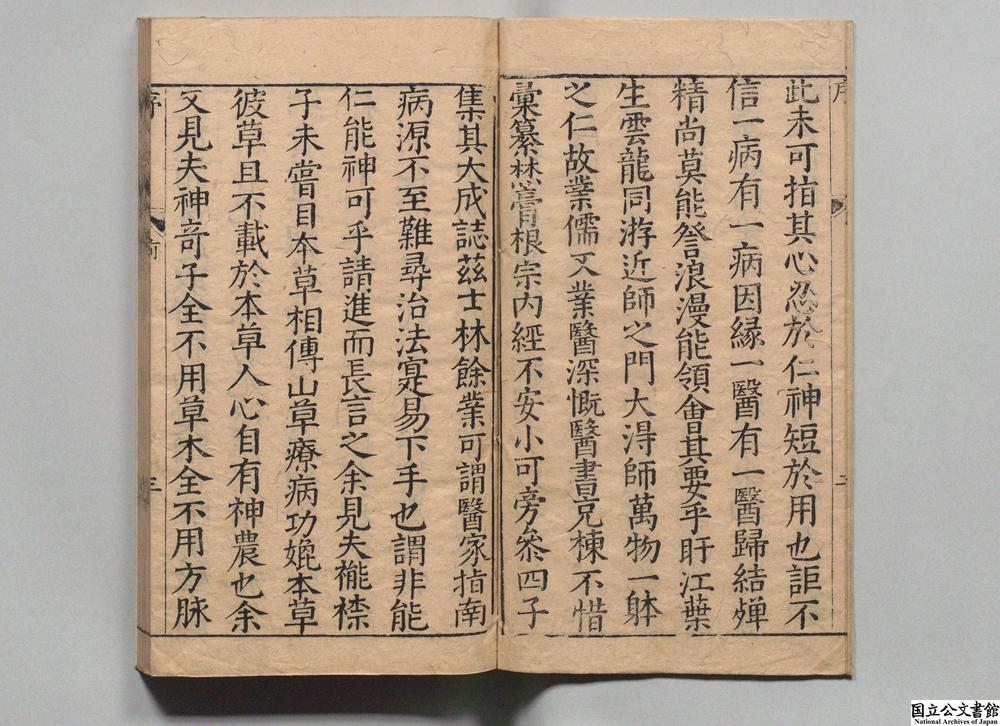 此未可指其心忍於仁神短於用也詎不
信一病有一病因緣一醫有一醫歸結殫
精尚莫能詧浪漫能領會其要乎盱江葉
生雲龍同游近師之門大淂師萬物一躰
之仁故業儒又業醫深慨醫書兄棟不惜
彙纂焚膏根宗内經不安小可旁叅四子
集其大成誌茲士林餘業可謂醫家指南
病源不至難尋治法寔易下手也謂非能
仁能神可乎請進而長言之余見夫襏襟
子未嘗目本草相傳山草療病功媲本草
彼草且不載於本草人心自有神農也余
又見夫神竒子全不用草木全不用方脉
序
三
国立公文書館
National Archives of Japan